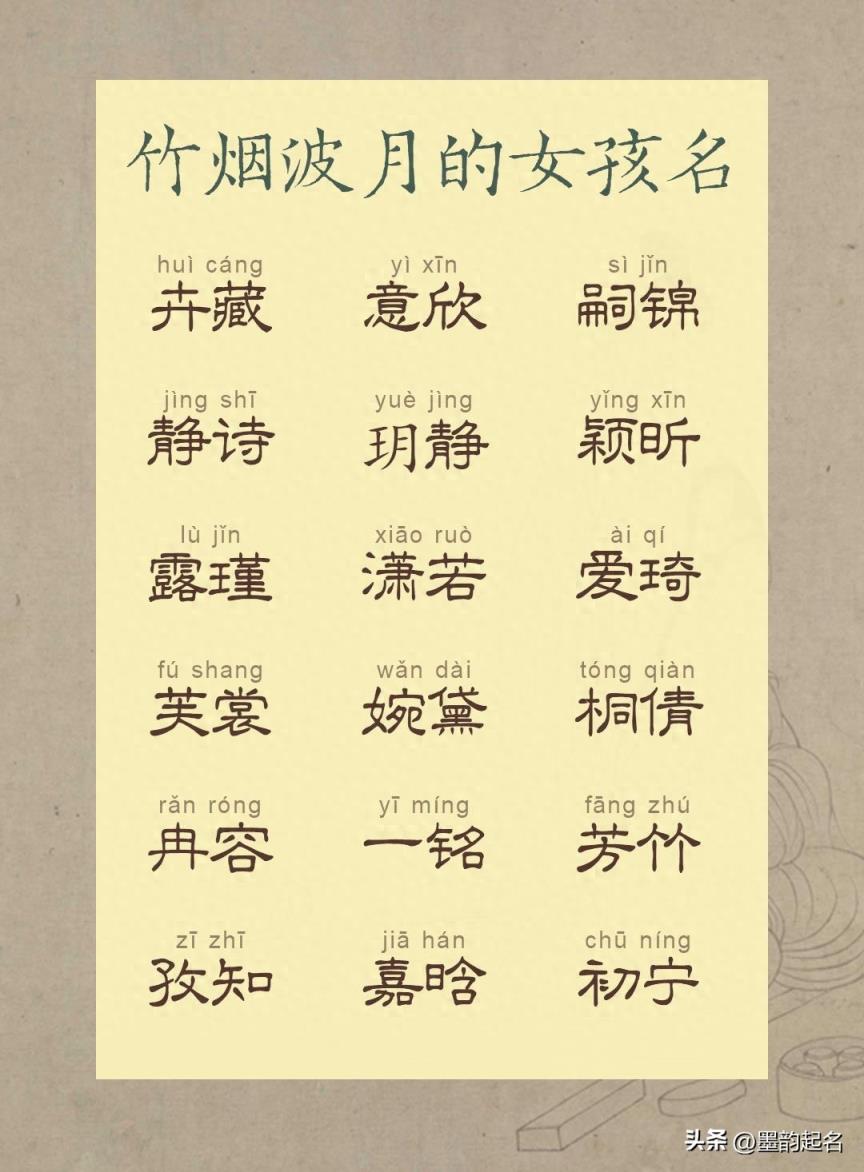 竹烟波月的女孩名
huì cáng yì xīn sì jǐn
卉藏 意欣 嗣锦
jìng shī yuè jìng yǐng xīn
静诗 玥静 颖昕
lù jǐn xiāo ruò ài qí
露瑾 潇若 爱琦
fú shang wǎn dài tóng qiàn
芙裳 婉黛 桐倩
rǎn róng yī míng fāng zhú
冉容 一铭 芳竹
zī zhī jiā hán chū níng
孜知 嘉晗 初宁
头条 @墨韵起名